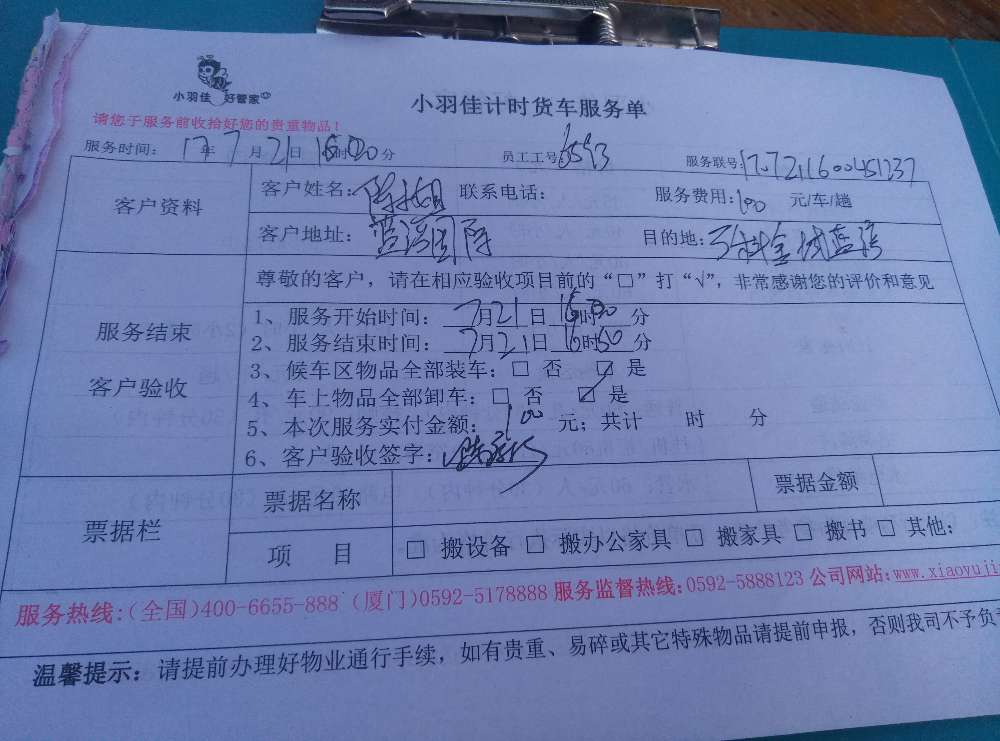 小羽佳 好管家
小羽佳计时货车服务单
请您于服务前收拾好您的贵重物品！
服务时间： 17年7月21日16时00分 员工工号: 服务联号:1707211600451237
客户资料
客户姓名: 联系电话： 服务费用:100 元/车/趟
客户地址： 目的地:万科金域蓝湾
尊敬的客户，请在相应验收项目前的“□”打“√”，非常感谢您的评价和意见
服务结束
客户验收
1、服务开始时间：7月21日16时00分
2、服务结束时间：7月21日16时50分
3、候车区物品全部装车：□ 否 ☑ 是
4、车上物品全部卸车：□ 否 ☑ 是
5、本次服务实付金额：100 元；共计 时 分
6、客户验收签字：
票据栏
票据名称 票据金额
项 目 □ 搬设备 □ 搬办公家具 □ 搬家具 □ 搬书 □ 其他:
服务热线:(全国)400-6655-888 (厦门)0592-5178888 服务监督热线:0592-5888123 公司网站:www.xiaoyuji
温馨提示：请提前办理好物业通行手续，如有贵重、易碎或其它特殊物品请提前申报，否则我司不予负